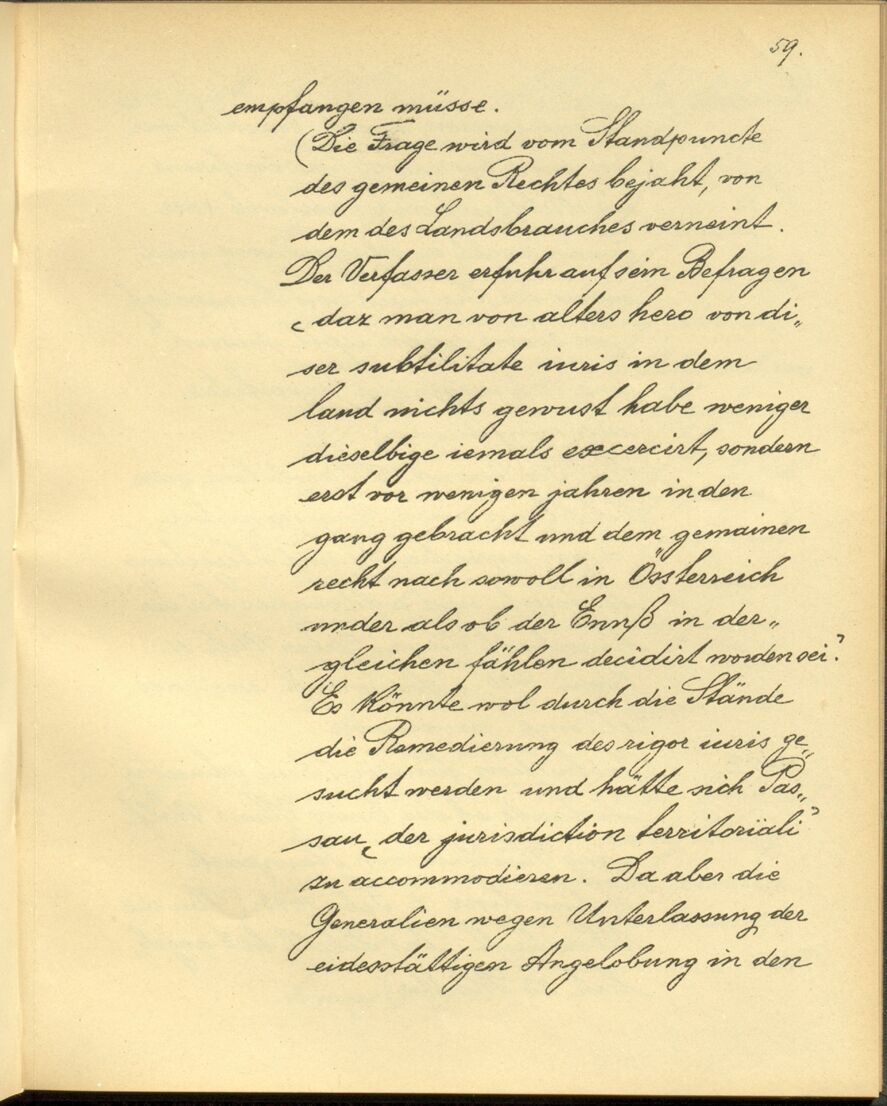 59.
empfangen müsse.
(Die Frage wird vom Standpuncte
des gemeinen Rechtes bejaht, von
dem des Landsbrauches verneint.
Der Verfasser erfuhr auf sein Befragen
„daz man von alters hero von di„
ser subtilitate iuris in dem
land nichts gewust habe weniger
dieselbige iemals excercirt, sondern
erst vor wenigen jahren in den
gang gebracht und dem gemainen
recht nach sowoll in Össterreich
under als ob der Ennß in der„
gleichen fählen decidirt worden sei."
Es könnte wol durch die Stände
die Remedierung des rigor iuris ge„
sucht werden und hätte sich Pas„
sau „der jurisdiction territoriali"
zu accommodieren. Da aber die
Generalien wegen Unterlassung der
eidesstättigen Angelobung in den